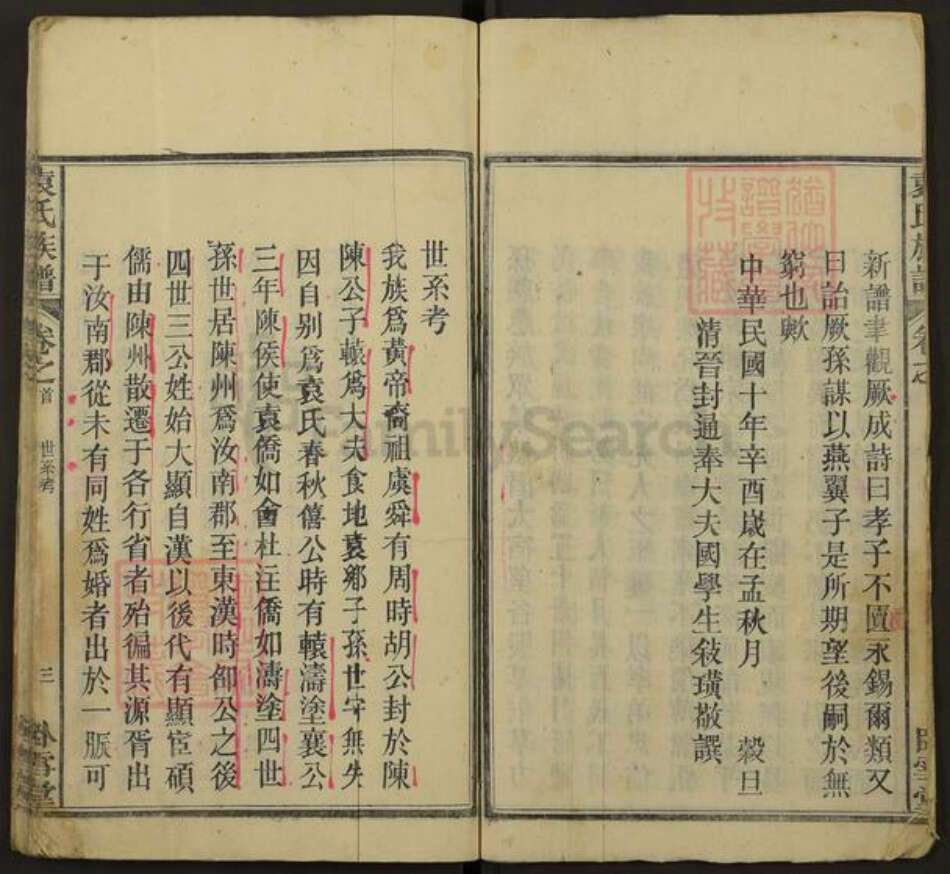 新譜聿觀厥成詩曰孝子不匱永錫爾類又
曰詒厥孫謀以燕翼子是所期望後嗣於無
窮也歟
中華民國十年辛酉歲在孟秋月 穀旦
清晉封通奉大夫國學生敍璜敬譔
世系考
我族爲黃帝裔祖虞舜有周時胡公封於陳
陳公子轅爲大夫食地袁鄉子孫世守無失
因自别爲袁氏春秋僖公時有轅濤塗襄公
三年陳侯使袁僑如會杜注僑如濤塗四世
孫世居陳州爲汝南郡至東漢時邵公之後
四世三公姓始大顯自漢以後代有顯宦碩
儒由陳州散遷于各行省者殆徧其源胥出
于汝南郡從未有同姓爲婚者出於一脈可
袁氏族譜
卷之首
世系考
三
臥雪堂
FamilySearch